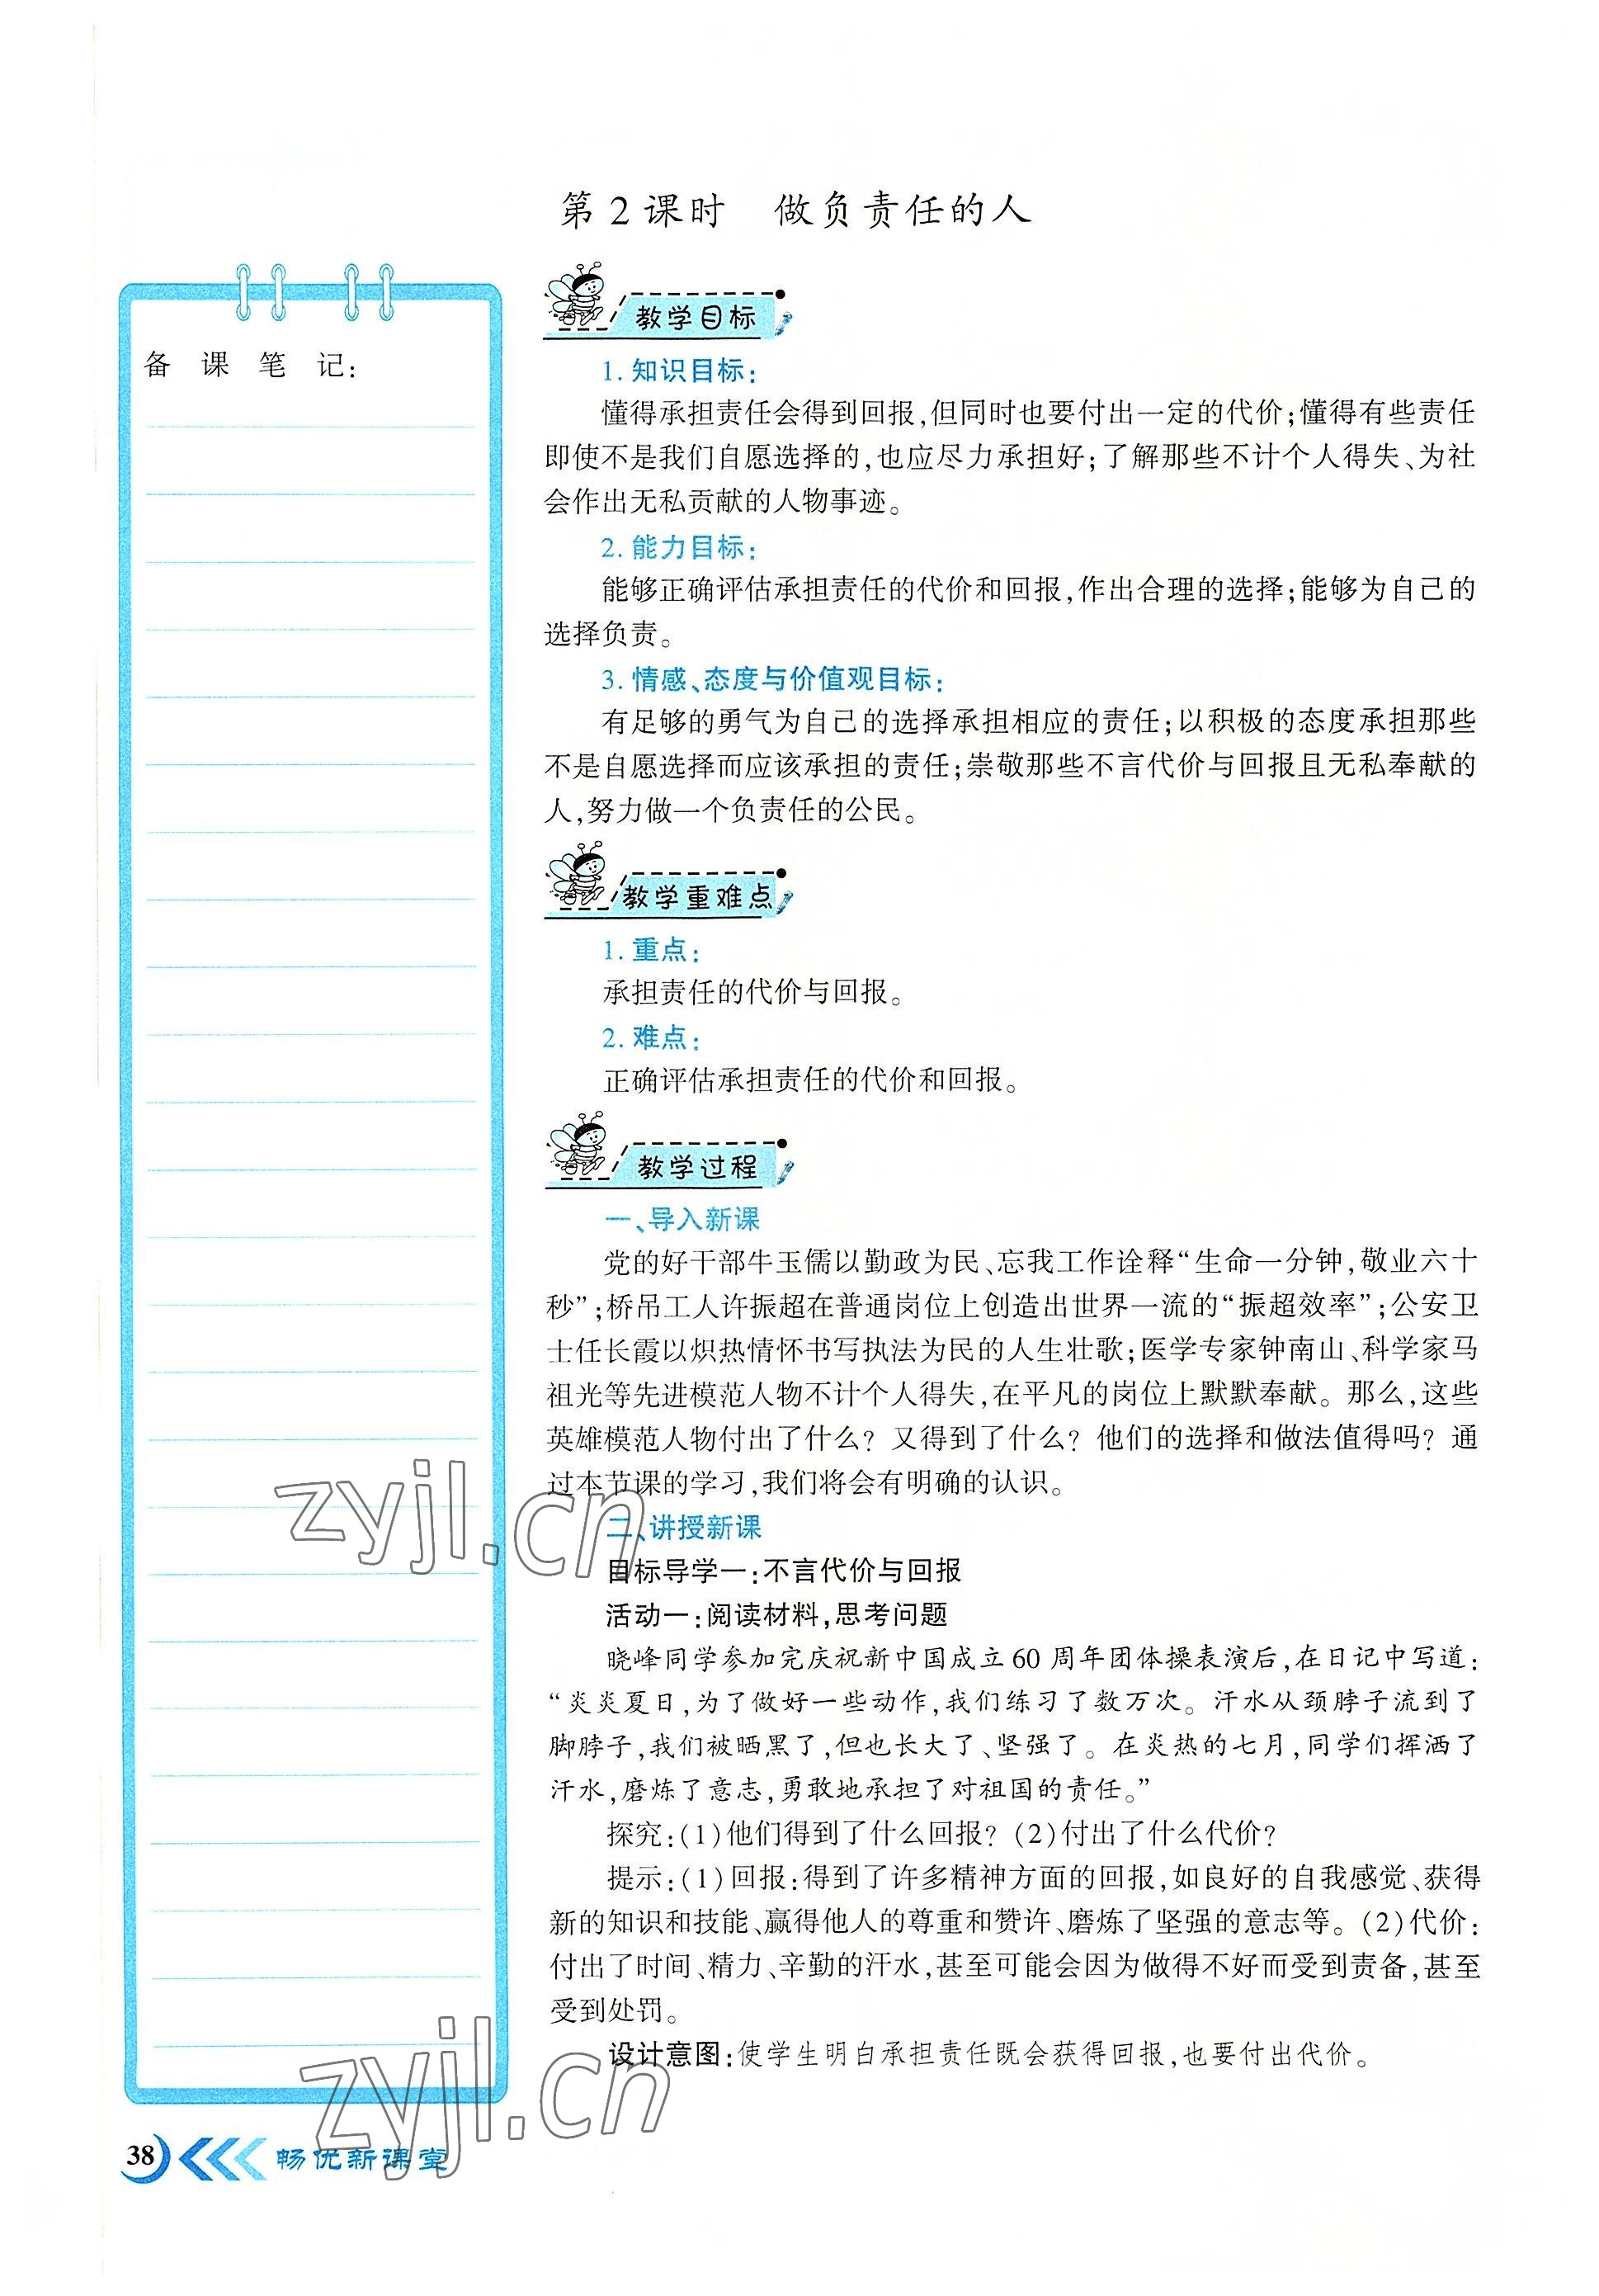 第2课时 做负责任的人
备课笔记:
教学目标
1. 知识目标:
懂得承担责任会得到回报,但同时也要付出一定的代价;懂得有些责任
即使不是我们自愿选择的,也应尽力承担好;了解那些不计个人得失、为社
会作出无私贡献的人物事迹。
2. 能力目标:
能够正确评估承担责任的代价和回报,作出合理的选择;能够为自己的
选择负责。
3. 情感、态度与价值观目标:
有足够的勇气为自己的选择承担相应的责任;以积极的态度承担那些
不是自愿选择而应该承担的责任;崇敬那些不言代价与回报且无私奉献的
人,努力做一个负责任的公民。
教学重难点
1. 重点:
承担责任的代价与回报。
2. 难点:
正确评估承担责任的代价和回报。
教学过程
一、导入新课
党的好干部牛玉儒以勤政为民、忘我工作诠释“生命一分钟,敬业六十
秒”;桥吊工人许振超在普通岗位上创造出世界一流的“振超效率”;公安卫
士任长霞以炽热情怀书写执法为民的人生壮歌;医学专家钟南山、科学家马
祖光等先进模范人物不计个人得失,在平凡的岗位上默默奉献。那么,这些
英雄模范人物付出了什么?又得到了什么?他们的选择和做法值得吗?通
过本节课的学习,我们将会有明确的认识。
二、讲授新课
目标导学一:不言代价与回报
活动一:阅读材料,思考问题
晓峰同学参加完庆祝新中国成立60周年团体操表演后,在日记中写道:
“炎炎夏日,为了做好一些动作,我们练习了数万次。汗水从颈脖子流到了
脚脖子,我们被晒黑了,但也长大了、坚强了。在炎热的七月,同学们挥洒了
汗水,磨炼了意志,勇敢地承担了对祖国的责任。”
探究:(1)他们得到了什么回报?(2)付出了什么代价?
提示:(1)回报:得到了许多精神方面的回报,如良好的自我感觉、获得
新的知识和技能、赢得他人的尊重和赞许、磨炼了坚强的意志等。(2)代价:
付出了时间、精力、辛勤的汗水,甚至可能会因为做得不好而受到责备,甚至
受到处罚。
设计意图:使学生明白承担责任既会获得回报,也要付出代价。
zyjl.cn
zyjl.cn
38 畅优新课堂